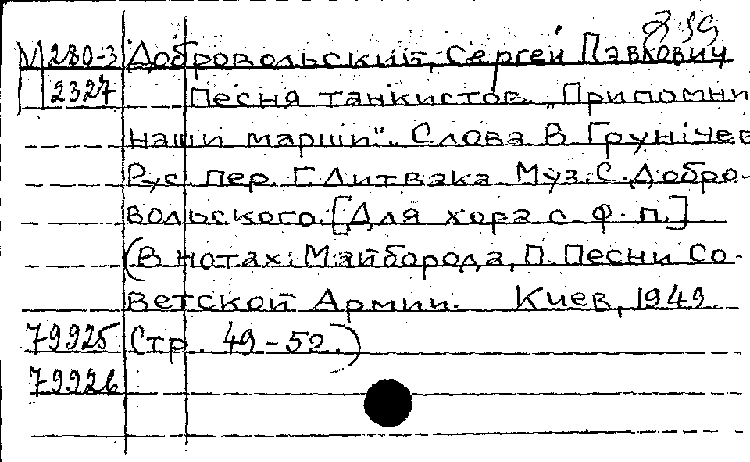 М280-3 Добровольский, Сергей Павлович
2327 Песня танкистов. „Припомни
наши марши". Слова В. Грунічев
Рус. пер. Г. Литвака. Муз. С. Добро-
вольского. [Для хора с ф-п.]
(В нотах: Майборода, П. Песни Со-
ветской Армии. Киев, 1949.
79925 Стр. 49-52.)
79926